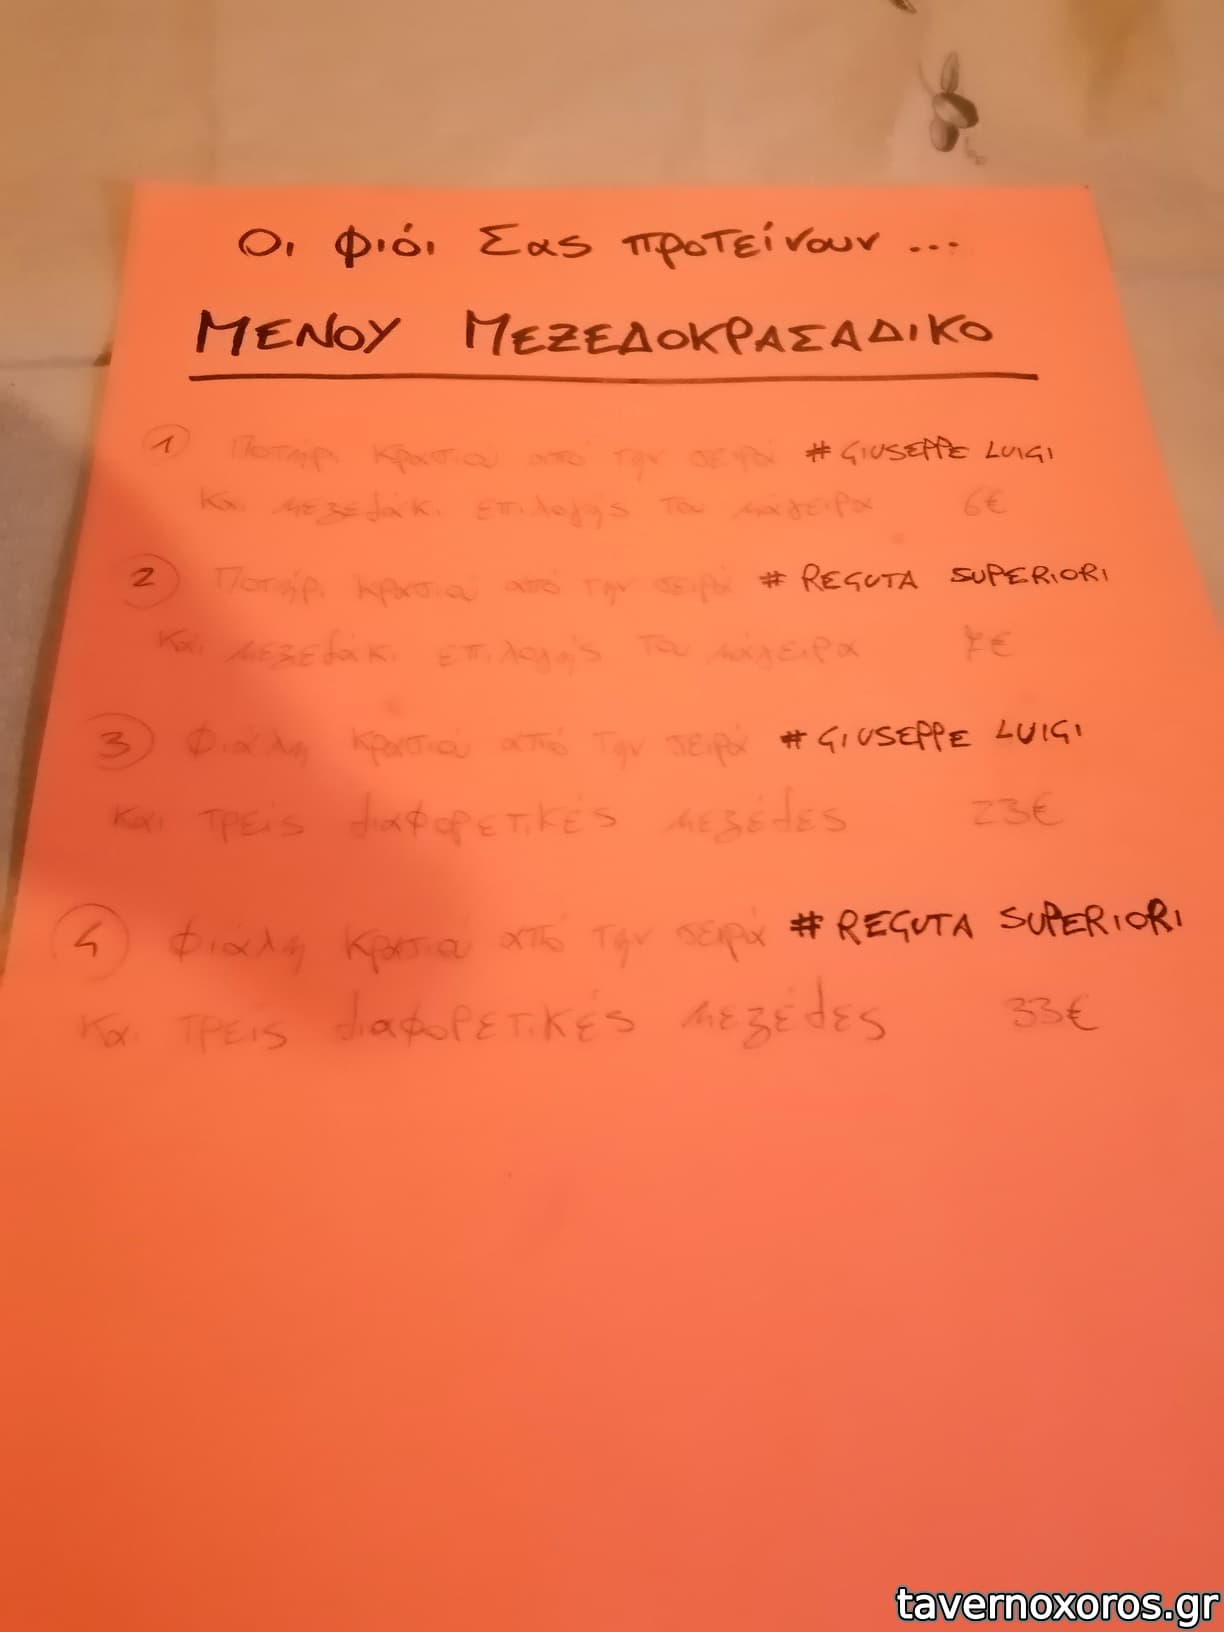 Οι φιόι Σας προτείνουν ...
ΜΕΝΟΥ ΜΕΖΕΔΟΚΡΑΣΑΔΙΚΟ
1 Ποτήρι κρασιού από την σειρά # GIUSEPPE LUIGI
Και μεζεδάκι επιλογής του μάγειρα 6€
2 Ποτήρι κρασιού από την σειρά # REGUTA SUPERIORI
Και μεζεδάκι επιλογής του μάγειρα 7€
3 Φιάλη κρασιού από την σειρά # GIUSEPPE LUIGI
Και τρείς διαφορετικές μεζέδες 23€
4 Φιάλη κρασιού από την σειρά # REGUTA SUPERIORI
Και τρείς διαφορετικές μεζέδες 33€
tavernoxoros.gr